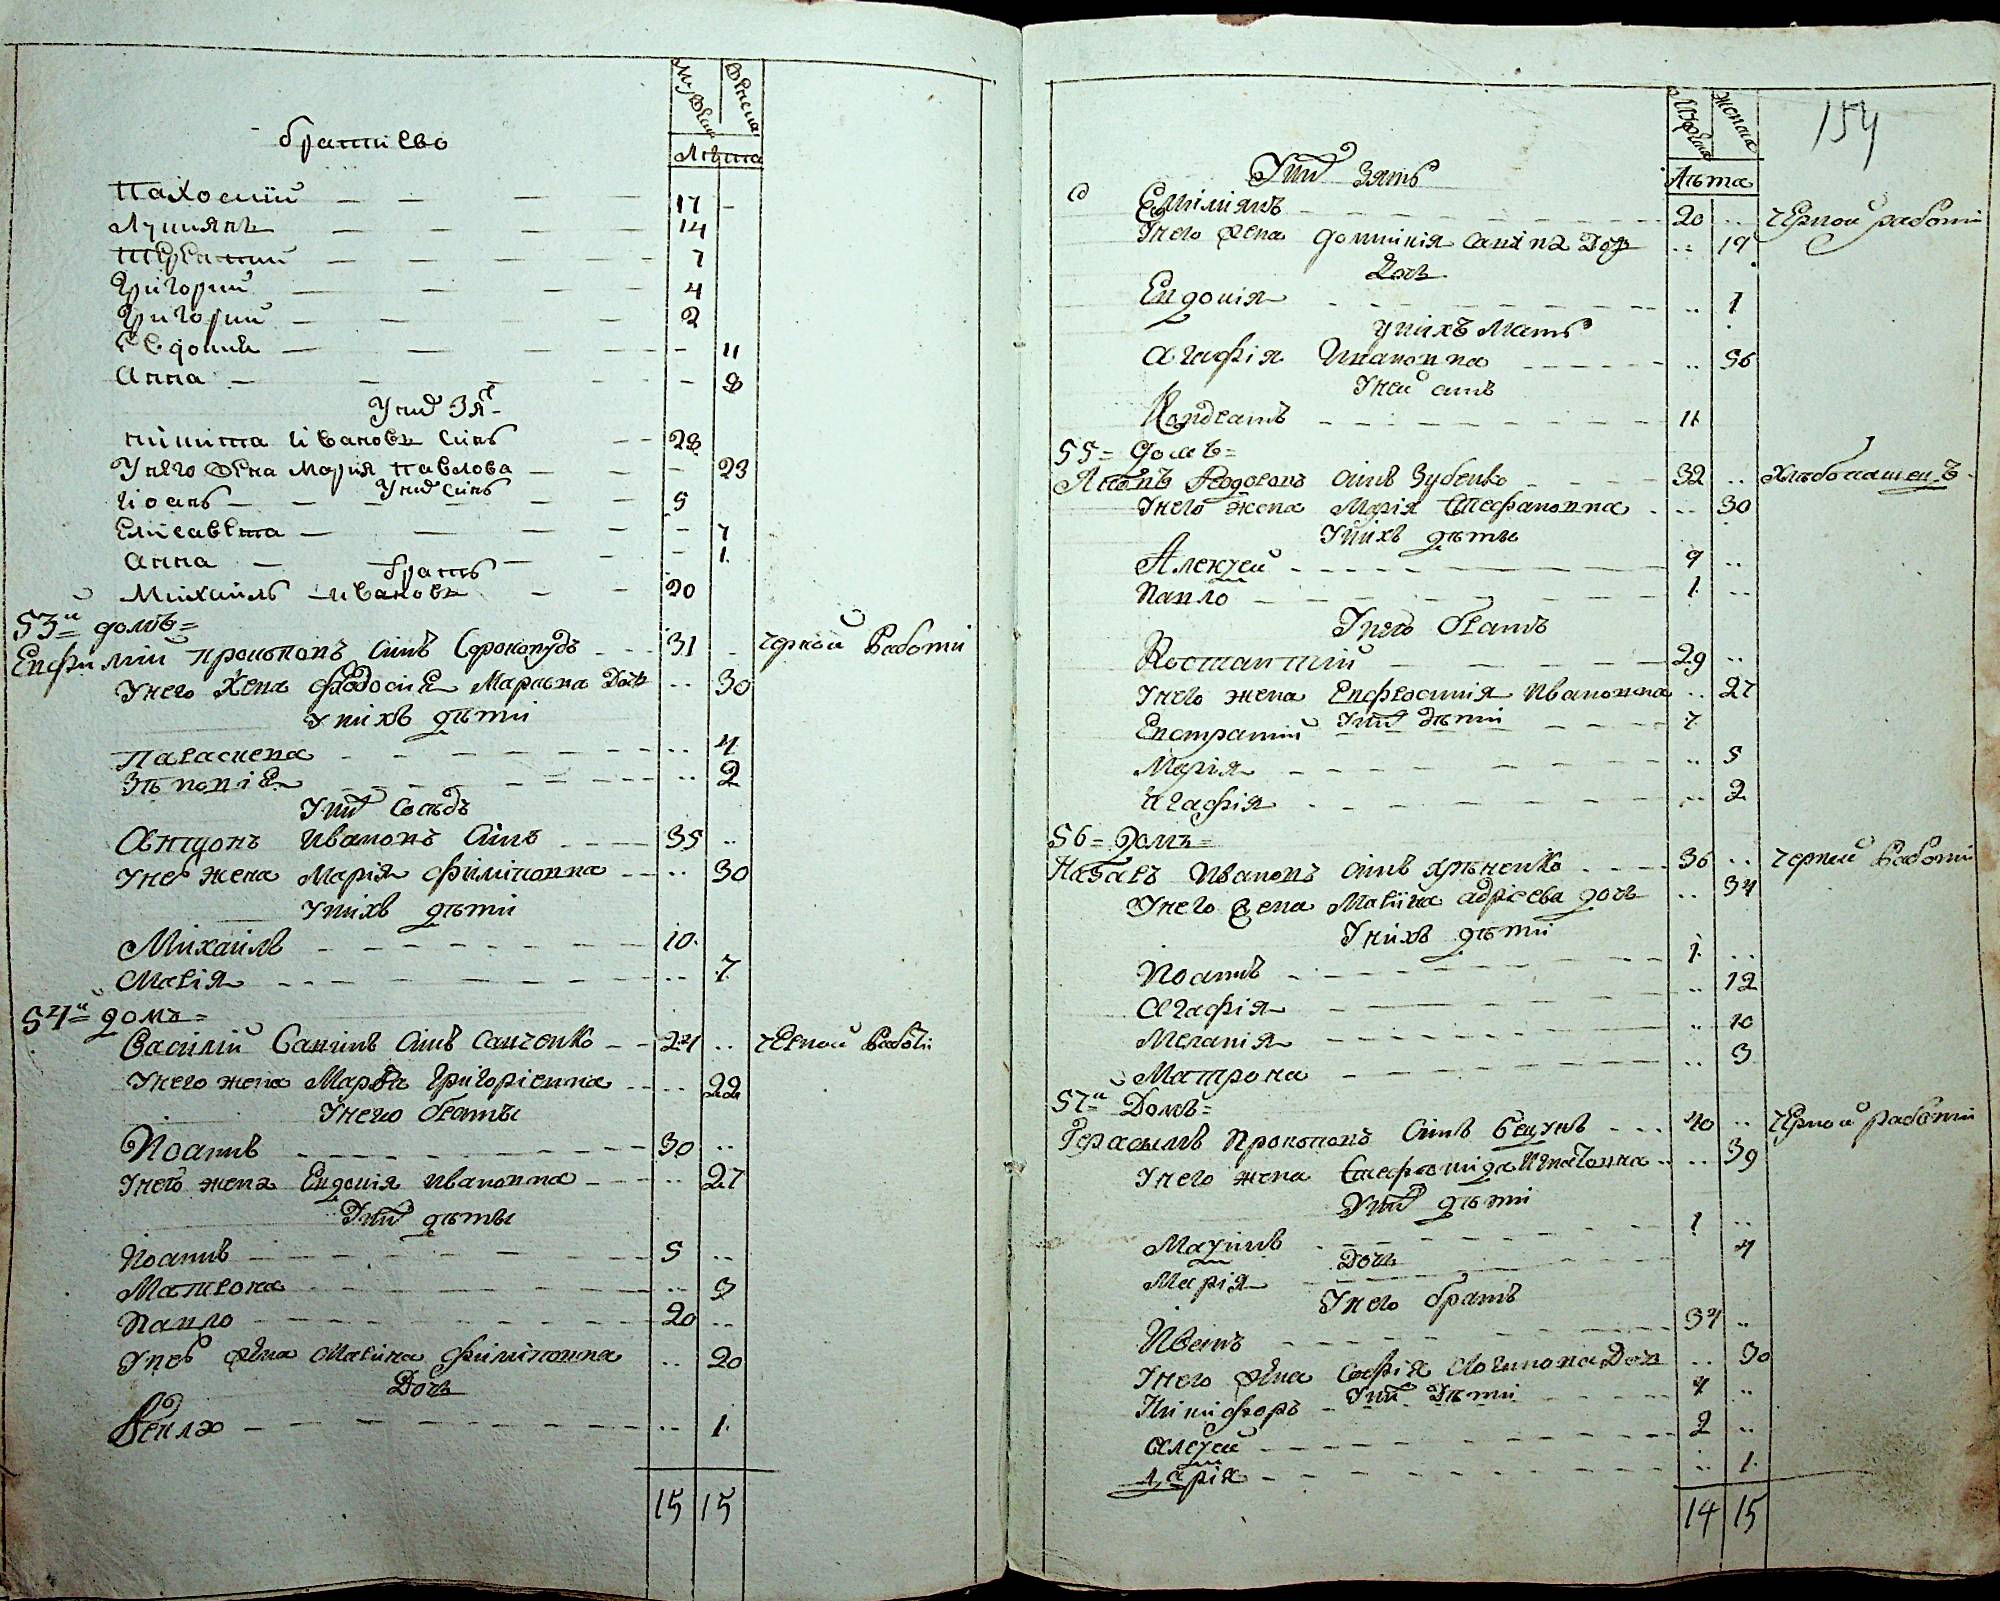 Мужеска Женска
Лѣта
братиево
Пахомий 17 -
Лукиянъ 14
Терентий 7
Григорий 4
Григорий 2
Евдокия - 11
Анна - 8
У них Зя
Никита Ивановъ синъ 28
У него жена Мария Павлова - 23
У них синъ
Иоанъ 5
Елисавета - 7
Анна - 1
братъ
Михаилъ Ивановъ 20
53й домъ=
Евфимий Прокоповъ синъ 31 - черной работи
У него жена Феодосия Маркова дочь .. 30
У нихъ дѣти
Параскева .. 4
Зѣновия .. 2
У них сосѣдъ
Антонъ Ивановъ синъ 35 ..
У него жена Мария Филиповна .. 30
У нихъ дѣти
Михаилъ 10
Мария .. 7
54й домъ=
Василий Савинъ синъ Савченко 24 .. черной работи
У него жена Марфа Григориевна .. 22
У него браты
Иоанъ 30 ..
У него жена Евдокия Ивановна .. 27
У них дѣты
Иоанъ 5 ..
Матрона .. 3
Павло 20 ..
У него жена Марина Филиповна .. 20
Дочь
Фекла .. 1
15 15
Мужеска Женска
154
Лѣта
У них зять
Емилиянъ 20 .. черной работи
У него жена Домникия Савина дочь .. 19
Дочь
Евдокия .. 1
У нихъ мать
Агафия Ивановна .. 56
У неи синъ
Кондратъ 11
55= домъ=
Антонъ Феодоровъ синъ Зубенко 32 .. хлѣбопашецъ
У него жена Мария Стефановна .. 30
У нихъ дѣты
Алексей 9 ..
Павло 1 ..
У него братъ
Костантий 29 ..
У него жена Евфросиния Ивановна .. 27
У них дѣти
Евстратий 7
Мария .. 5
Агафия .. 2
56= домъ=
Назаръ Ивановъ синъ 36 .. черной работи
У него жена Марина Адрѣева дочь .. 34
У нихъ дѣти
Иоанъ 1 ..
Агафия .. 12
Мелания .. 10
Матрона .. 3
57й Домъ=
Герасимъ Прокоповъ синъ 40 .. черной работи
У него жена Степанида Игнатовна .. 39
У них дѣти
Максимъ 1 ..
Дочь
Мария 4
У него братъ
Иванъ 34 ..
У него жена София Логинова дочь .. 30
У них дѣти
Никифоръ 4 ..
Алексей 2 ..
Дария .. 1
14 15